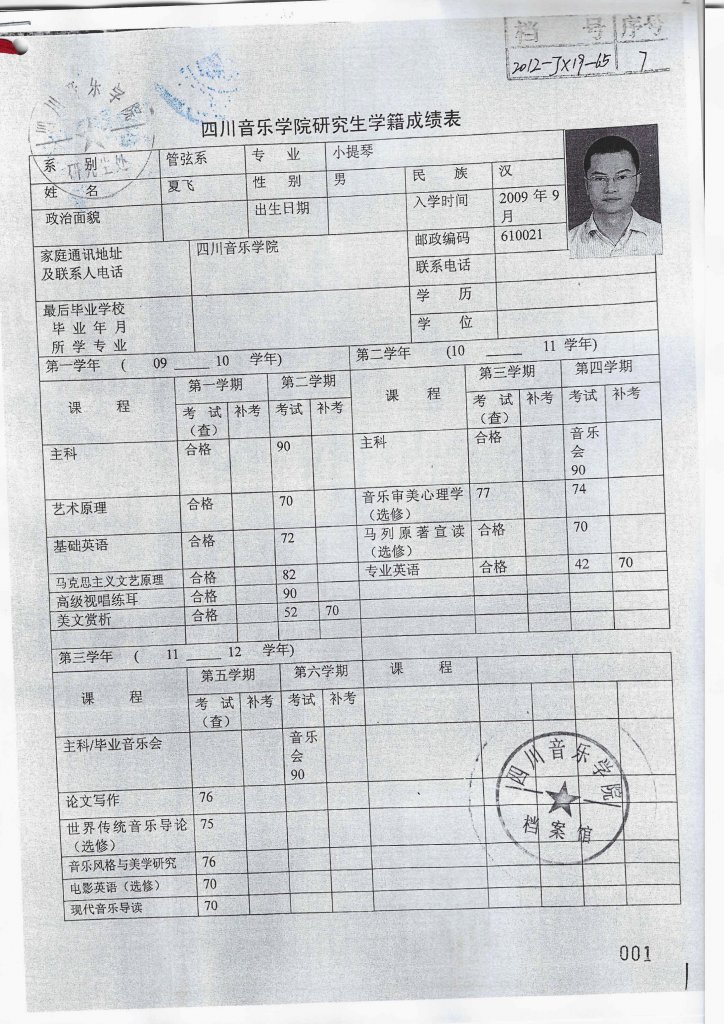 档 号 序号
2012-JX19-65 7
四川音乐学院
研究生处
四川音乐学院研究生学籍成绩表
系 别 管弦系 专 业 小提琴
姓 名 夏飞 性 别 男 民 族 汉
政治面貌 出生日期 入学时间 2009 年 9
月
家庭通讯地址 四川音乐学院 邮政编码 610021
及联系人电话 联系电话
最后毕业学校 学 历
毕 业 年 月
所 学 专 业 学 位
第一学年 ( 09 ____ 10 学年) 第二学年 (10 ____ 11 学年)
课 程 第一学期 第二学期 课 程 第三学期 第四学期
考 试 补考 考试 补考 考 试 补考 考试 补考
(查) (查)
主科 合格 90 主科 合格 音乐
会
90
艺术原理 合格 70 音乐审美心理学 77 74
(选修)
基础英语 合格 72 马列原著宣读 合格 70
(选修)
马克思主义文艺原理 合格 82 专业英语 合格 42 70
高级视唱练耳 合格 90
美文赏析 合格 52 70
第三学年 ( 11 ____ 12 学年)
课 程 第五学期 第六学期 课 程
考 试 补考 考试 补考
(查)
主科/毕业音乐会 音乐
会
90
论文写作 76
世界传统音乐导论 75
(选修)
音乐风格与美学研究 76
电影英语(选修) 70
现代音乐导读 70
四川音乐学院
档案馆
001